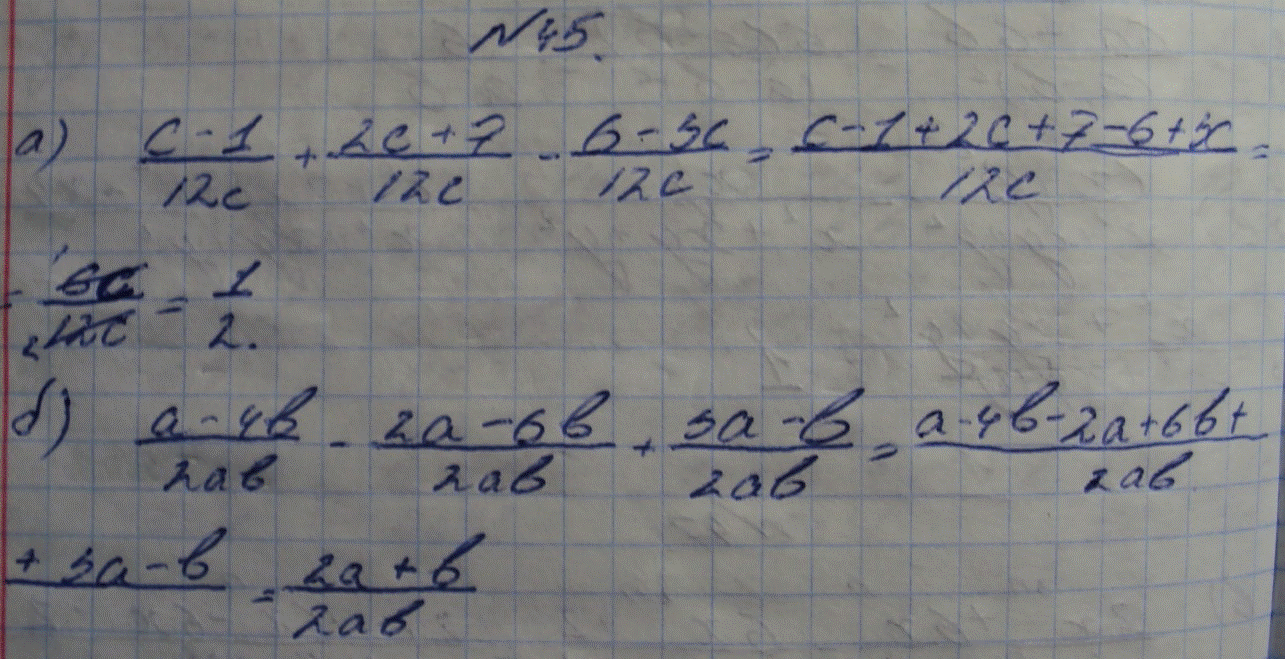 №45.
а) (c-1)/(12c) + (2c+7)/(12c) - (6-3c)/(12c) = (c-1+2c+7-6+3c)/(12c) =
= (6c)/(12c) = 1/2.
б) (a-4b)/(2ab) - (2a-6b)/(2ab) + (3a-b)/(2ab) = (a-4b-2a+6b+)/(2ab)
(+3a-b) = (2a+b)/(2ab)